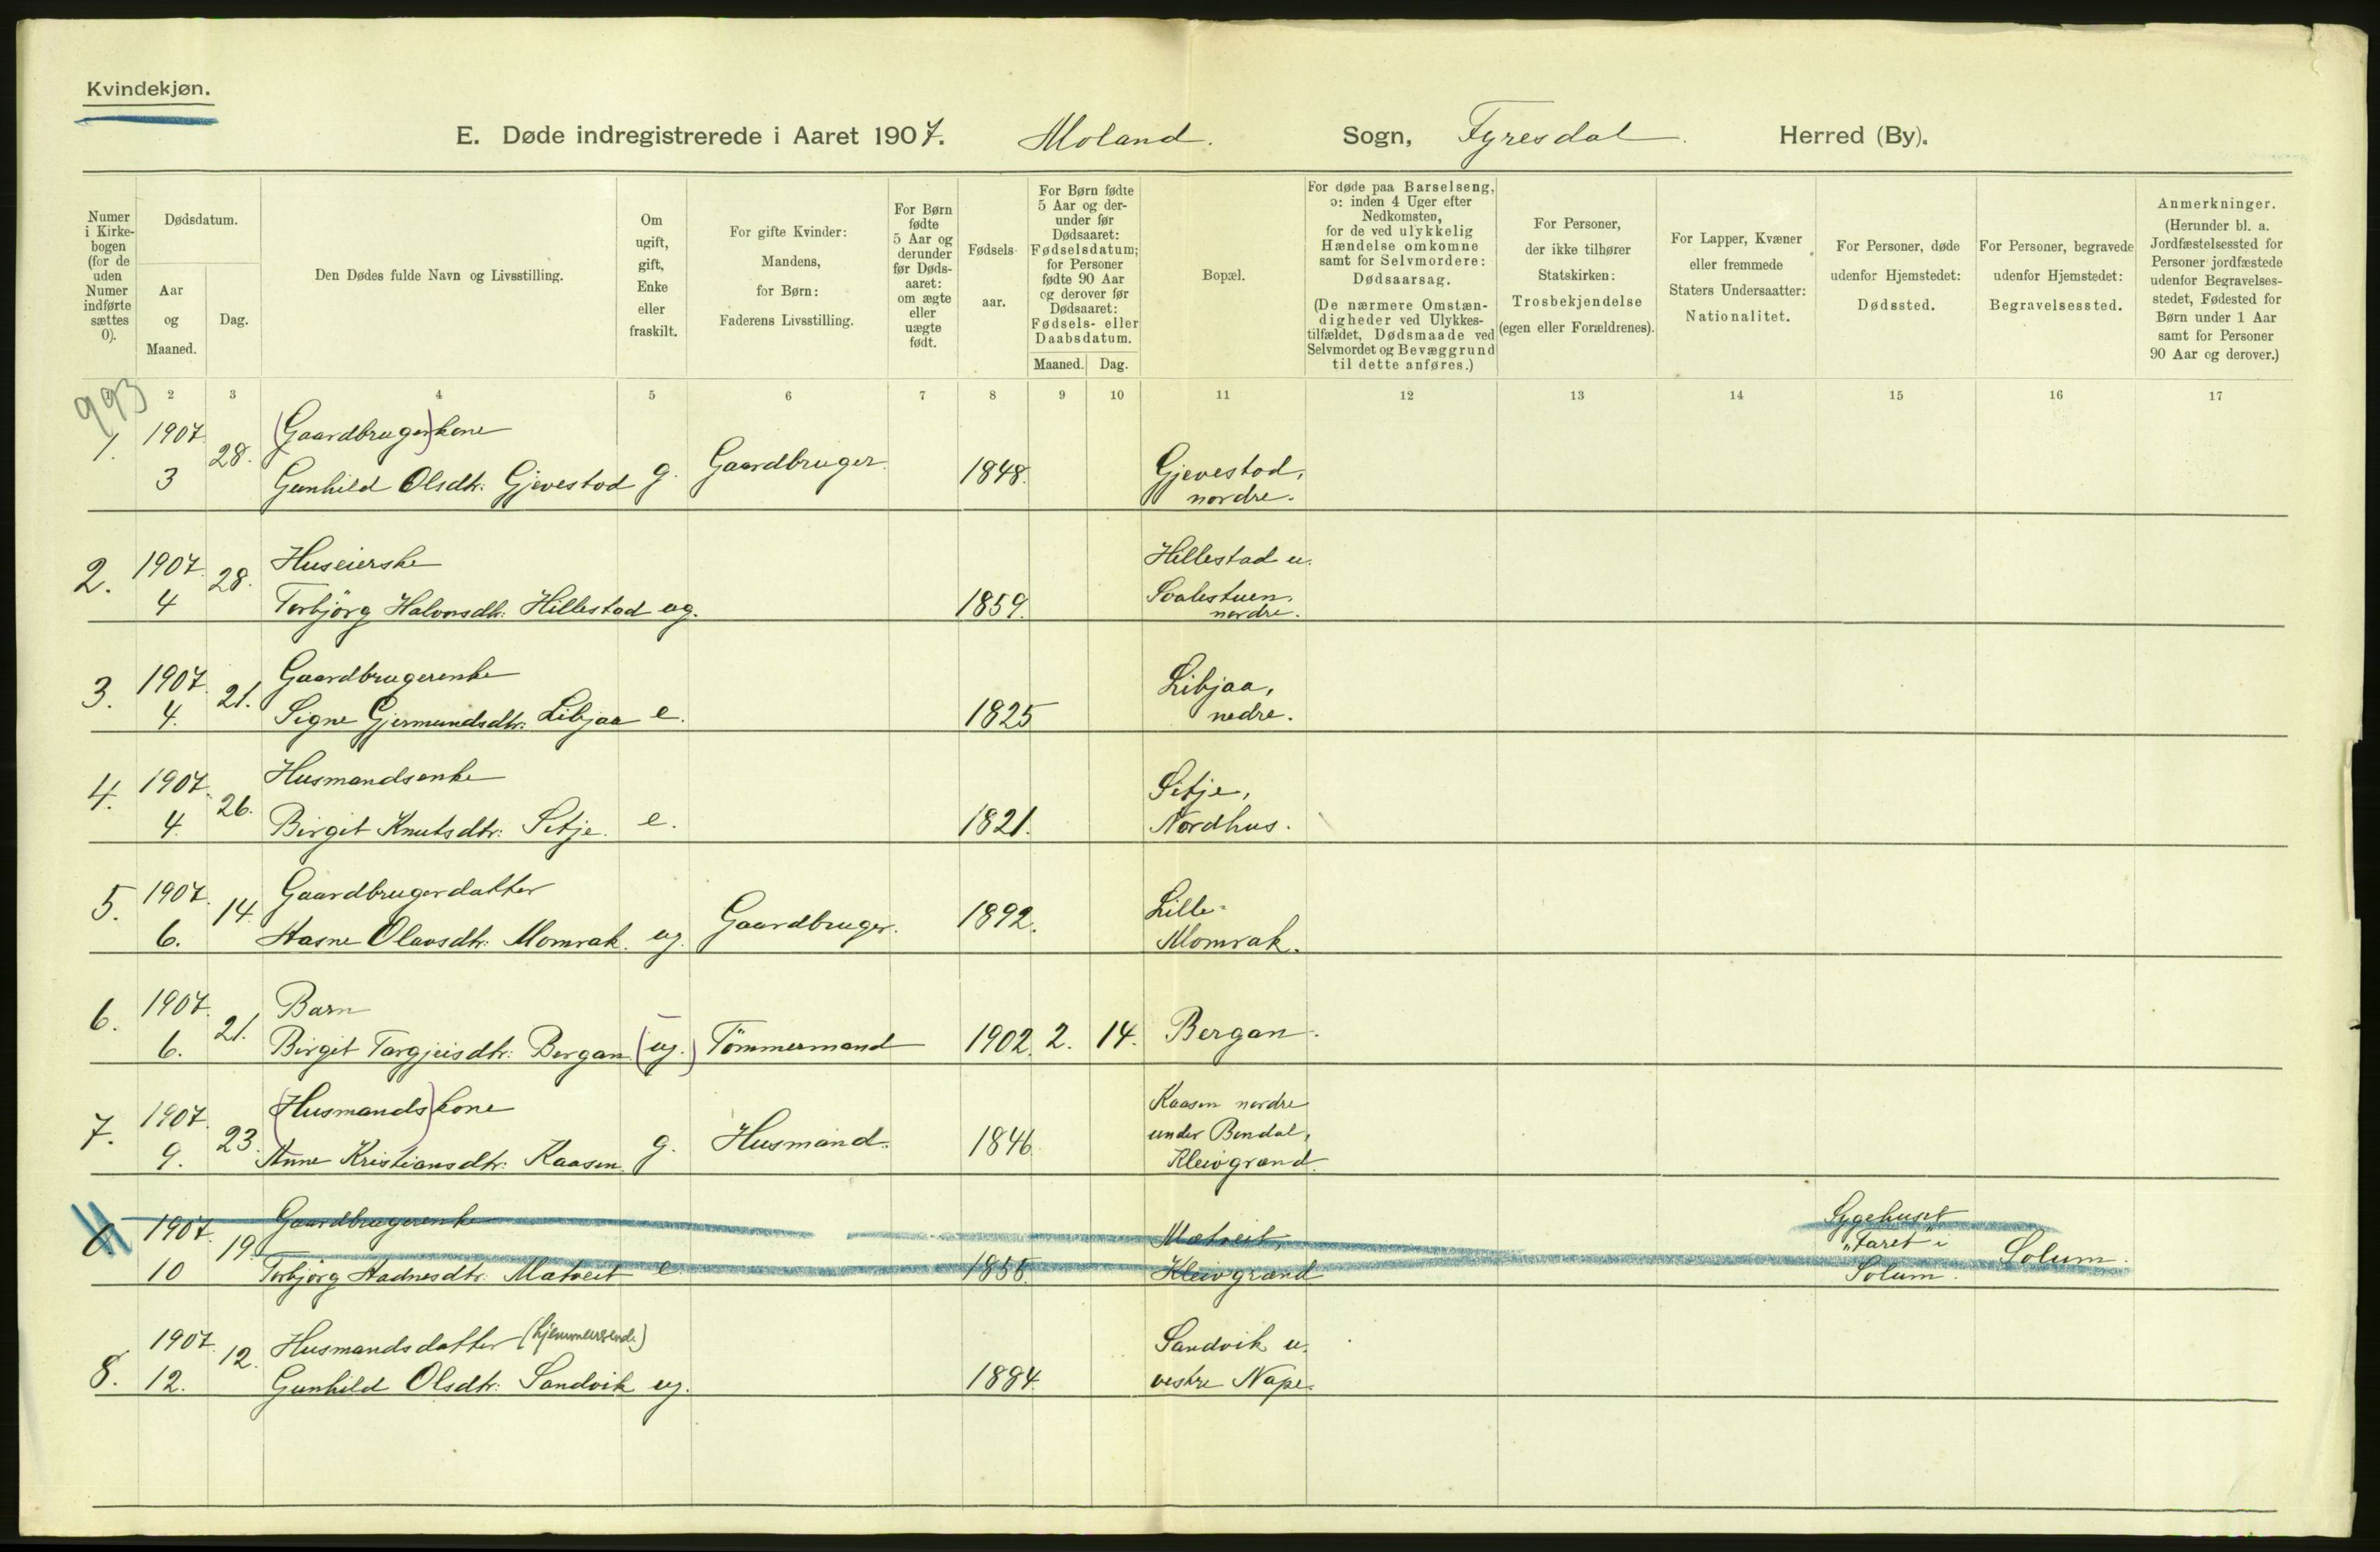 Kvindekjøn.
E. Døde indregistrerede i Aaret 1907. Moland. Sogn, Tyresdal. Herred (By).
Numer i Kirkebogen (for de uden Numer indførte sættes 0).
Dødsdatum.
Aar og Maaned.
Dag.
Den Dødes fulde Navn og Livsstilling.
Om ugift, gift, Enke eller fraskilt.
For gifte Kvinder: Mandens, for Børn: Faderens Livsstilling.
For Børn fødte 5 Aar og derunder før Dødsaaret: om ægte eller uægte født.
Fødselsaar.
For Børn fødte 5 Aar og derunder før Dødsaaret: Fødselsdatum; for Personer fødte 90 Aar og derover før Dødsaaret: Fødsels- eller Daabsdatum.
Maaned. Dag.
Bopæl.
For døde paa Barselseng, ɔ: inden 4 Uger efter Nedkomsten, for de ved ulykkelig Hændelse omkomne samt for Selvmordere: Dødsaarsag. (De nærmere Omstændigheder ved Ulykkestilfældet, Dødsmaade ved Selvmordet og Bevæggrund til dette anføres.)
For Personer, der ikke tilhører Statskirken: Trosbekjendelse (egen eller Forældrenes).
For Lapper, Kvæner eller fremmede Staters Undersaatter: Nationalitet.
For Personer, døde udenfor Hjemstedet: Dødssted.
For Personer, begravede udenfor Hjemstedet: Begravelsessted.
Anmerkninger. (Herunder bl. a. Jordfæstelsessted for Personer jordfæstede udenfor Begravelsesstedet, Fødested for Børn under 1 Aar samt for Personer 90 Aar og derover.)
993
2 3 4 5 6 7 8 9 10 11 12 13 14 15 16 17
1. 1907. 28. (Gaardbruger)kone
3 Gunhild Olsdtr. Gjevestad g. Gaardbruger. 1848. Gjevestad, nordre.
2. 1907. 28. Huseierske Hillestad u.
4 Torbjörg Halvorsdtr. Hillestad ug. 1859. nordre.
3. 1907. 21. Gaardbrugerenke Libjaa,
4. Signe Gjermundsdtr. Libjaa e. 1825 nedre.
4. 1907. 26. Husmandsenke Sitje,
4. Birgit Knutsdtr. Sitje. e. 1821. Nordhus.
5. 1907. 14. Gaardbrugerdatter Lille-
6. Aasne Olavsdtr. Momrak. ug. Gaardbruger. 1892. Momrak.
6. 1907. 21. Barn
6. Birgit Targjeisdtr. Bergan (ug.) Tömmermand 1902. 2. 14. Bergan.
7. 1907. 23. (Husmands)kone Kaasen nordre
9. Anne Kristiansdtr. Kaasen. g. Husmand. 1846. under Bendal, Kleivgrænd.
0 1907. 19. Gaardbrugerenke Matveit, Sygehuset "Faret" i
10 Torbjörg Aadnesdtr. Matveit e. 1855. Kleivgrænd Solum. Solum.
8. 1907. 12. Husmandsdatter (hjemmeværende) Sandvik u.
12. Gunhild Olsdtr. Sandvik ug. 1884. vestre Nape.